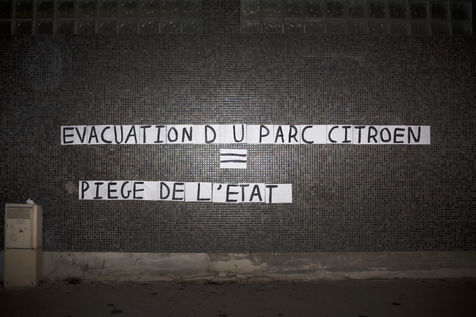 EVACUATION DU PARC CITROEN
=
PIEGE DE L'ETAT